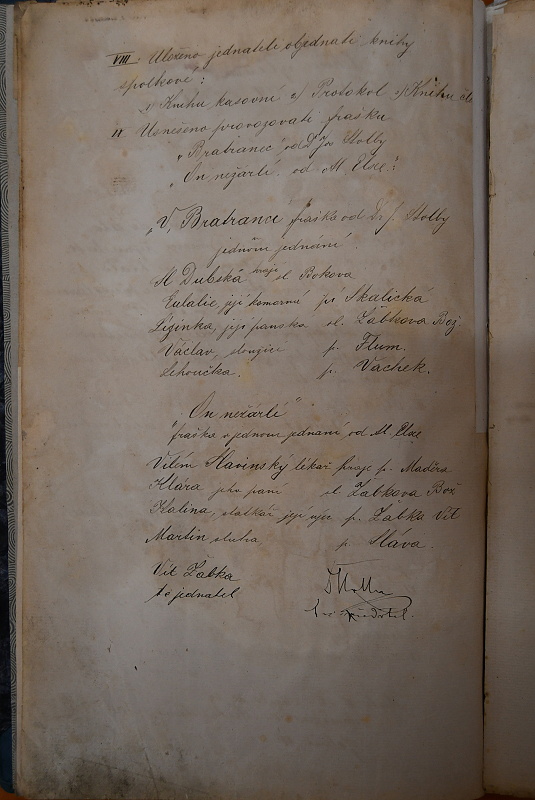 VIII. Uloženo jednateli objednati knihy
spolkové:
1) Knihu kasovní 2) Protokol 3) Knihu
Usneseno provozovati frašku
„Bratranec" od Dr J. Štolby
„On nežárlí" od M. Elze:
„V, Bratranec" fraška od Dr J. Štolby
jednom jednání
M Dubská hraje sl. Bokova
Eulalie, její komorná pí Skalická
Léginka, její panska sl. Žábkova Bož
Václav, sloužící p. Flum.
Lehoučka. p. Vachek.
„On nežárlí"
fraška v jednom jednaní od M. Elze
Vilém Slavinský lékař hraje p. Maděra
Klára jeho paní sl. Žábkova Bož
Kalina, statkář její ujec p. Žábka Vít
Martin sluha p. Sláva.
Vít Žábka
t. č. jednatel